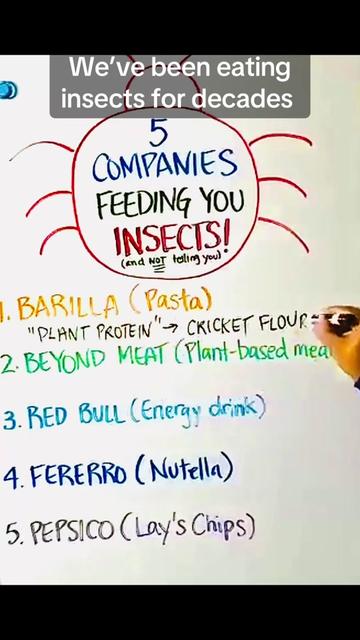 We've been eating
insects for decades
5
COMPANIES
FEEDING YOU
INSECTS!
(and NOT telling you)
1. BARILLA (Pasta)
"PLANT PROTEIN" → CRICKET FLOUR
2. BEYOND MEAT (Plant-based mea
3. RED BULL (Energy drink)
4. FERERRO (Nutella)
5. PEPSICO (Lay's Chips)